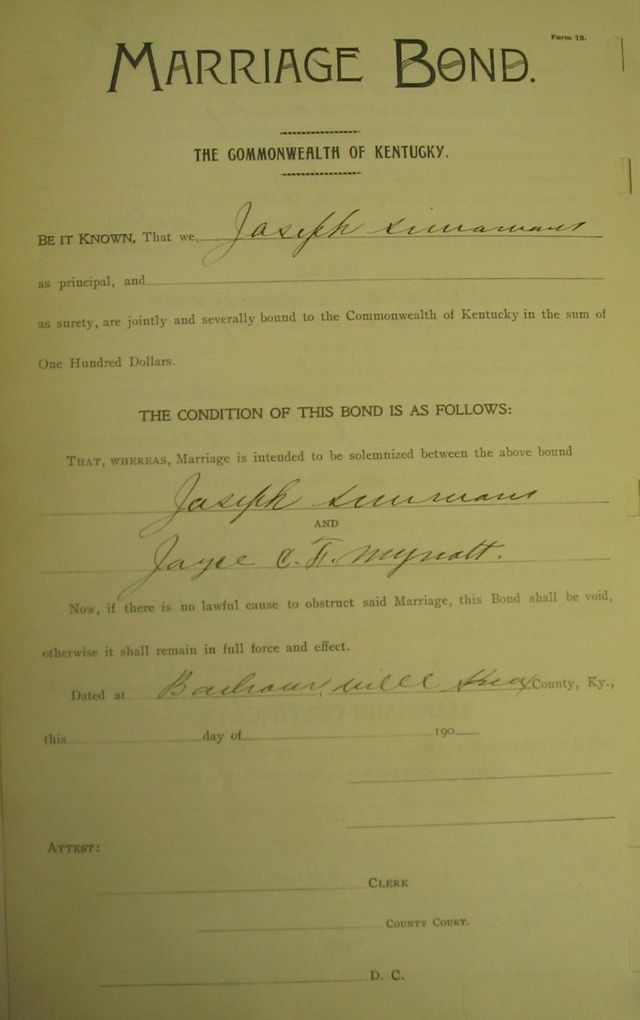 Form 73.
MARRIAGE BOND.
THE COMMONWEALTH OF KENTUCKY.
BE IT KNOWN, That we, Joseph
as principal, and
as surety, are jointly and severally bound to the Commonwealth of Kentucky in the sum of
One Hundred Dollars.
THE CONDITION OF THIS BOND IS AS FOLLOWS:
THAT, WHEREAS, Marriage is intended to be solemnized between the above bound
Joseph
AND
C. F. Mynatt.
Now, if there is no lawful cause to obstruct said Marriage, this Bond shall be void,
otherwise it shall remain in full force and effect.
Dated at ville Knox County, Ky.,
this day of 190
ATTEST:
CLERK
COUNTY COURT.
D. C.